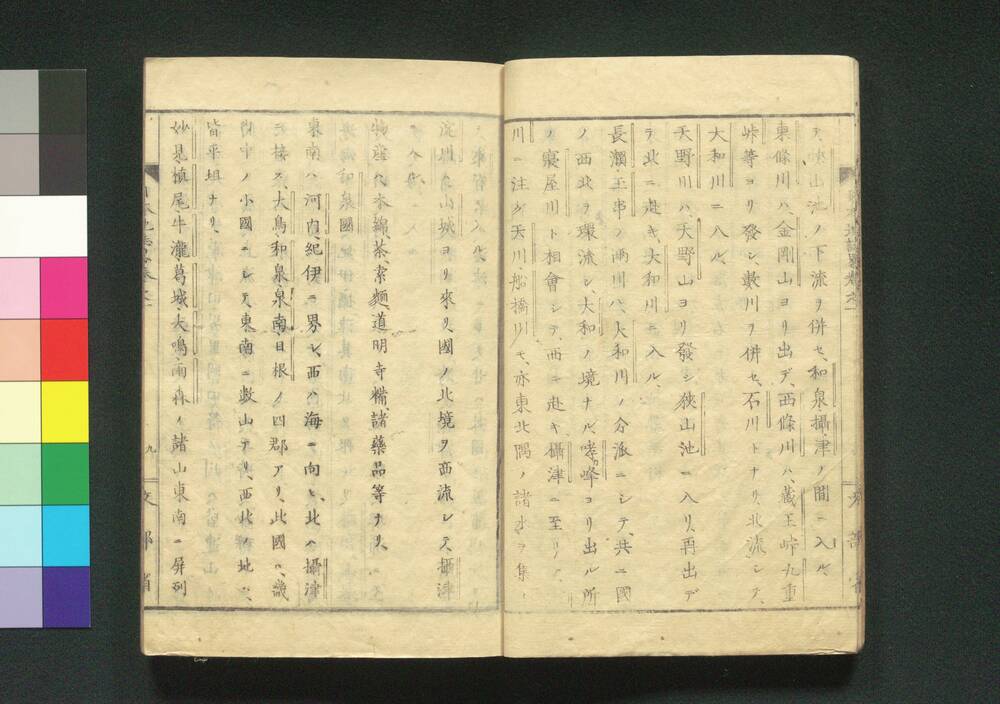 テ、狹山池ノ下流ヲ併セ、和泉攝津ノ間ニ入ル、
東條川ハ、金剛山ヨリ出デ、西條川ハ、藏王峠九重
峠等ヨリ發シ、數川ヲ併セ、石川トナリ、北流シテ、
大和川ニ入ル、
天野川ハ、天野山ヨリ發シ狹山池ニ入リ、再出デ
テ北ニ走キ、大和川ニ入ル、
長瀨玉串ノ兩川ハ、大和川ノ分派ニシテ、共ニ國
ノ西北ヲ環流シ、大和ノ境ナル、峰ヨリ出ル所
ノ寢屋川ト相會シテ、西ニ赴キ攝津ニ至リ、
川ニ注グ天川、船橋川モ、亦東北隅ノ諸水ヲ集
淀川ハ、山城ヨリ來リ、國ノ北境ヲ西流シテ、攝津
ヘ入ル、
物産ハ、木綿、茶、索麵、道明寺糒諸藥品等ナリ、
和泉國
東南ハ、河內、紀伊ニ界シ、西ハ海ニ向ヒ、北ハ攝津
ニ接ス、大鳥、和泉、泉南、日根ノ四郡アリ、此國ハ、畿
內中ノ小國ニシテ、東南ニ數山アリ、西北ノ地ハ、
皆平坦ナリ、
妙見、槙尾、牛瀧、葛城、大鳴、雨森ノ諸山東南ニ屏列
九
文部省